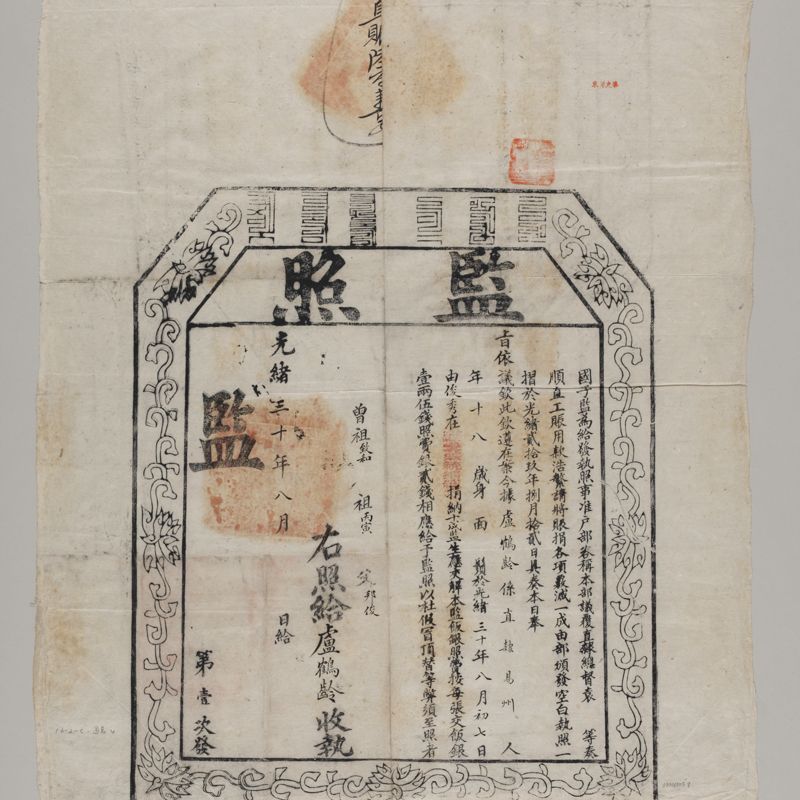 監照
國子監為給發執照事准戶部咨稱本部議覆直隸總督袁 等奏
順直工賑用款浩繁請將賑捐各項裁減一成由部頒發空白執照一
摺於光緒貳拾玖年捌月拾貳日具奏本日奉
旨依議欽此欽遵在案今據盧鶴齡係直隸易州人
年十八歲身面 鬚於光緒三十年八月初七日
由俊秀在 捐納 監生應天解本監飯銀照費按每張交飯銀
壹兩伍錢照費銀貳錢相應給予監照以杜假冒頂替等弊須至照者
曾祖致和 祖丙寅 父邦俊
右照給盧鶴齡收執
光緒三十年八月 日給
監
第壹次發